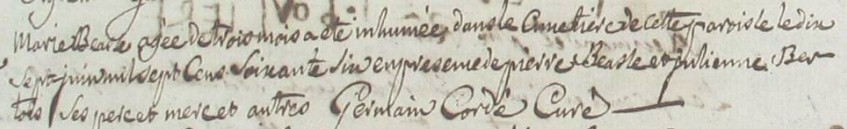 Marie Beasle agée de trois mois a eté inhumée dans le Cimetiére de cette paroisse le dix
sept juin mil sept Cens Soixante six en presence de pierre Beasle et julienne Ber
tois Ses pere et mere et autres Germain Cordé Curé